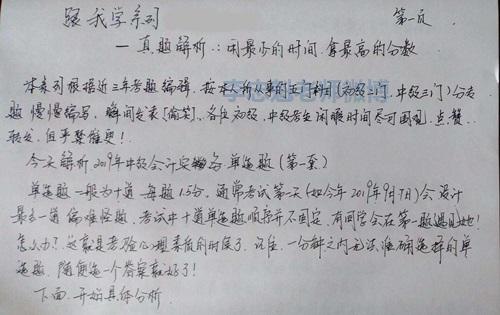 跟我学系列
第一页
一真题解析:用最少的时间,拿最高的分数
本系列根据近三年考题编辑,按本人所从事的五门科目(初级二门,中级三门)分专
题慢慢编写,瞬间发表[偷笑],各位初级、中级考生闲暇时间尽可围观、点赞、
转发,但严禁催更!
今天解析2019年中级会计实务 单选题(第一套)
单选题一般为十道 每题1.5分,通常考试第一天(如今年2019年9月7日)会设计
最多一道偏难怪题,考试中十道单选题顺序并不固定,有同学会在第一题遇见她!
怎么办?这就是考验心理素质的时候了,记住,一分钟之内无法准确选择的单
选题,随便选一个答案就好了!
下面,开始具体分析.
老师微博